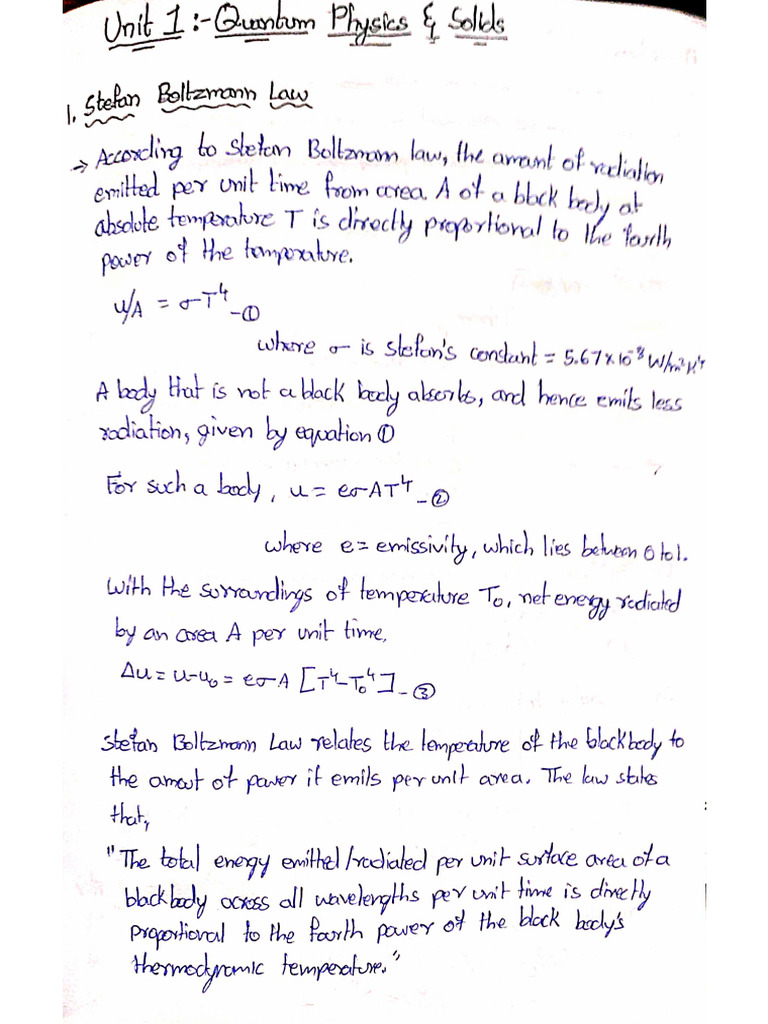 Unit 1:- Quantum Physics & Solids
1. Stefan Boltzmann Law
→ According to Stefan Boltzmann law, the amount of radiation
emitted per unit time from area A of a black body at
absolute temperature T is directly proportional to the fourth
power of the temperature.
u/A = σT⁴ -①
where σ is Stefan's constant = 5.67×10⁻⁸ W/m²k⁴
A body that is not a black body absorbs, and hence emits less
radiation, given by equation ①
For such a body, u = eσAT⁴ -②
where e = emissivity, which lies between 0 to 1.
With the surroundings of temperature T₀, net energy radiated
by an area A per unit time,
Δu = u-u₀ = eσA [T⁴-T₀⁴] -③
Stefan Boltzmann Law relates the temperature of the blackbody to
the amout of power it emits per unit area. The law states
that,
"The total energy emitted/radiated per unit surface area of a
blackbody across all wavelengths per unit time is directly
proportional to the fourth power of the black body's
thermodynamic temperature."